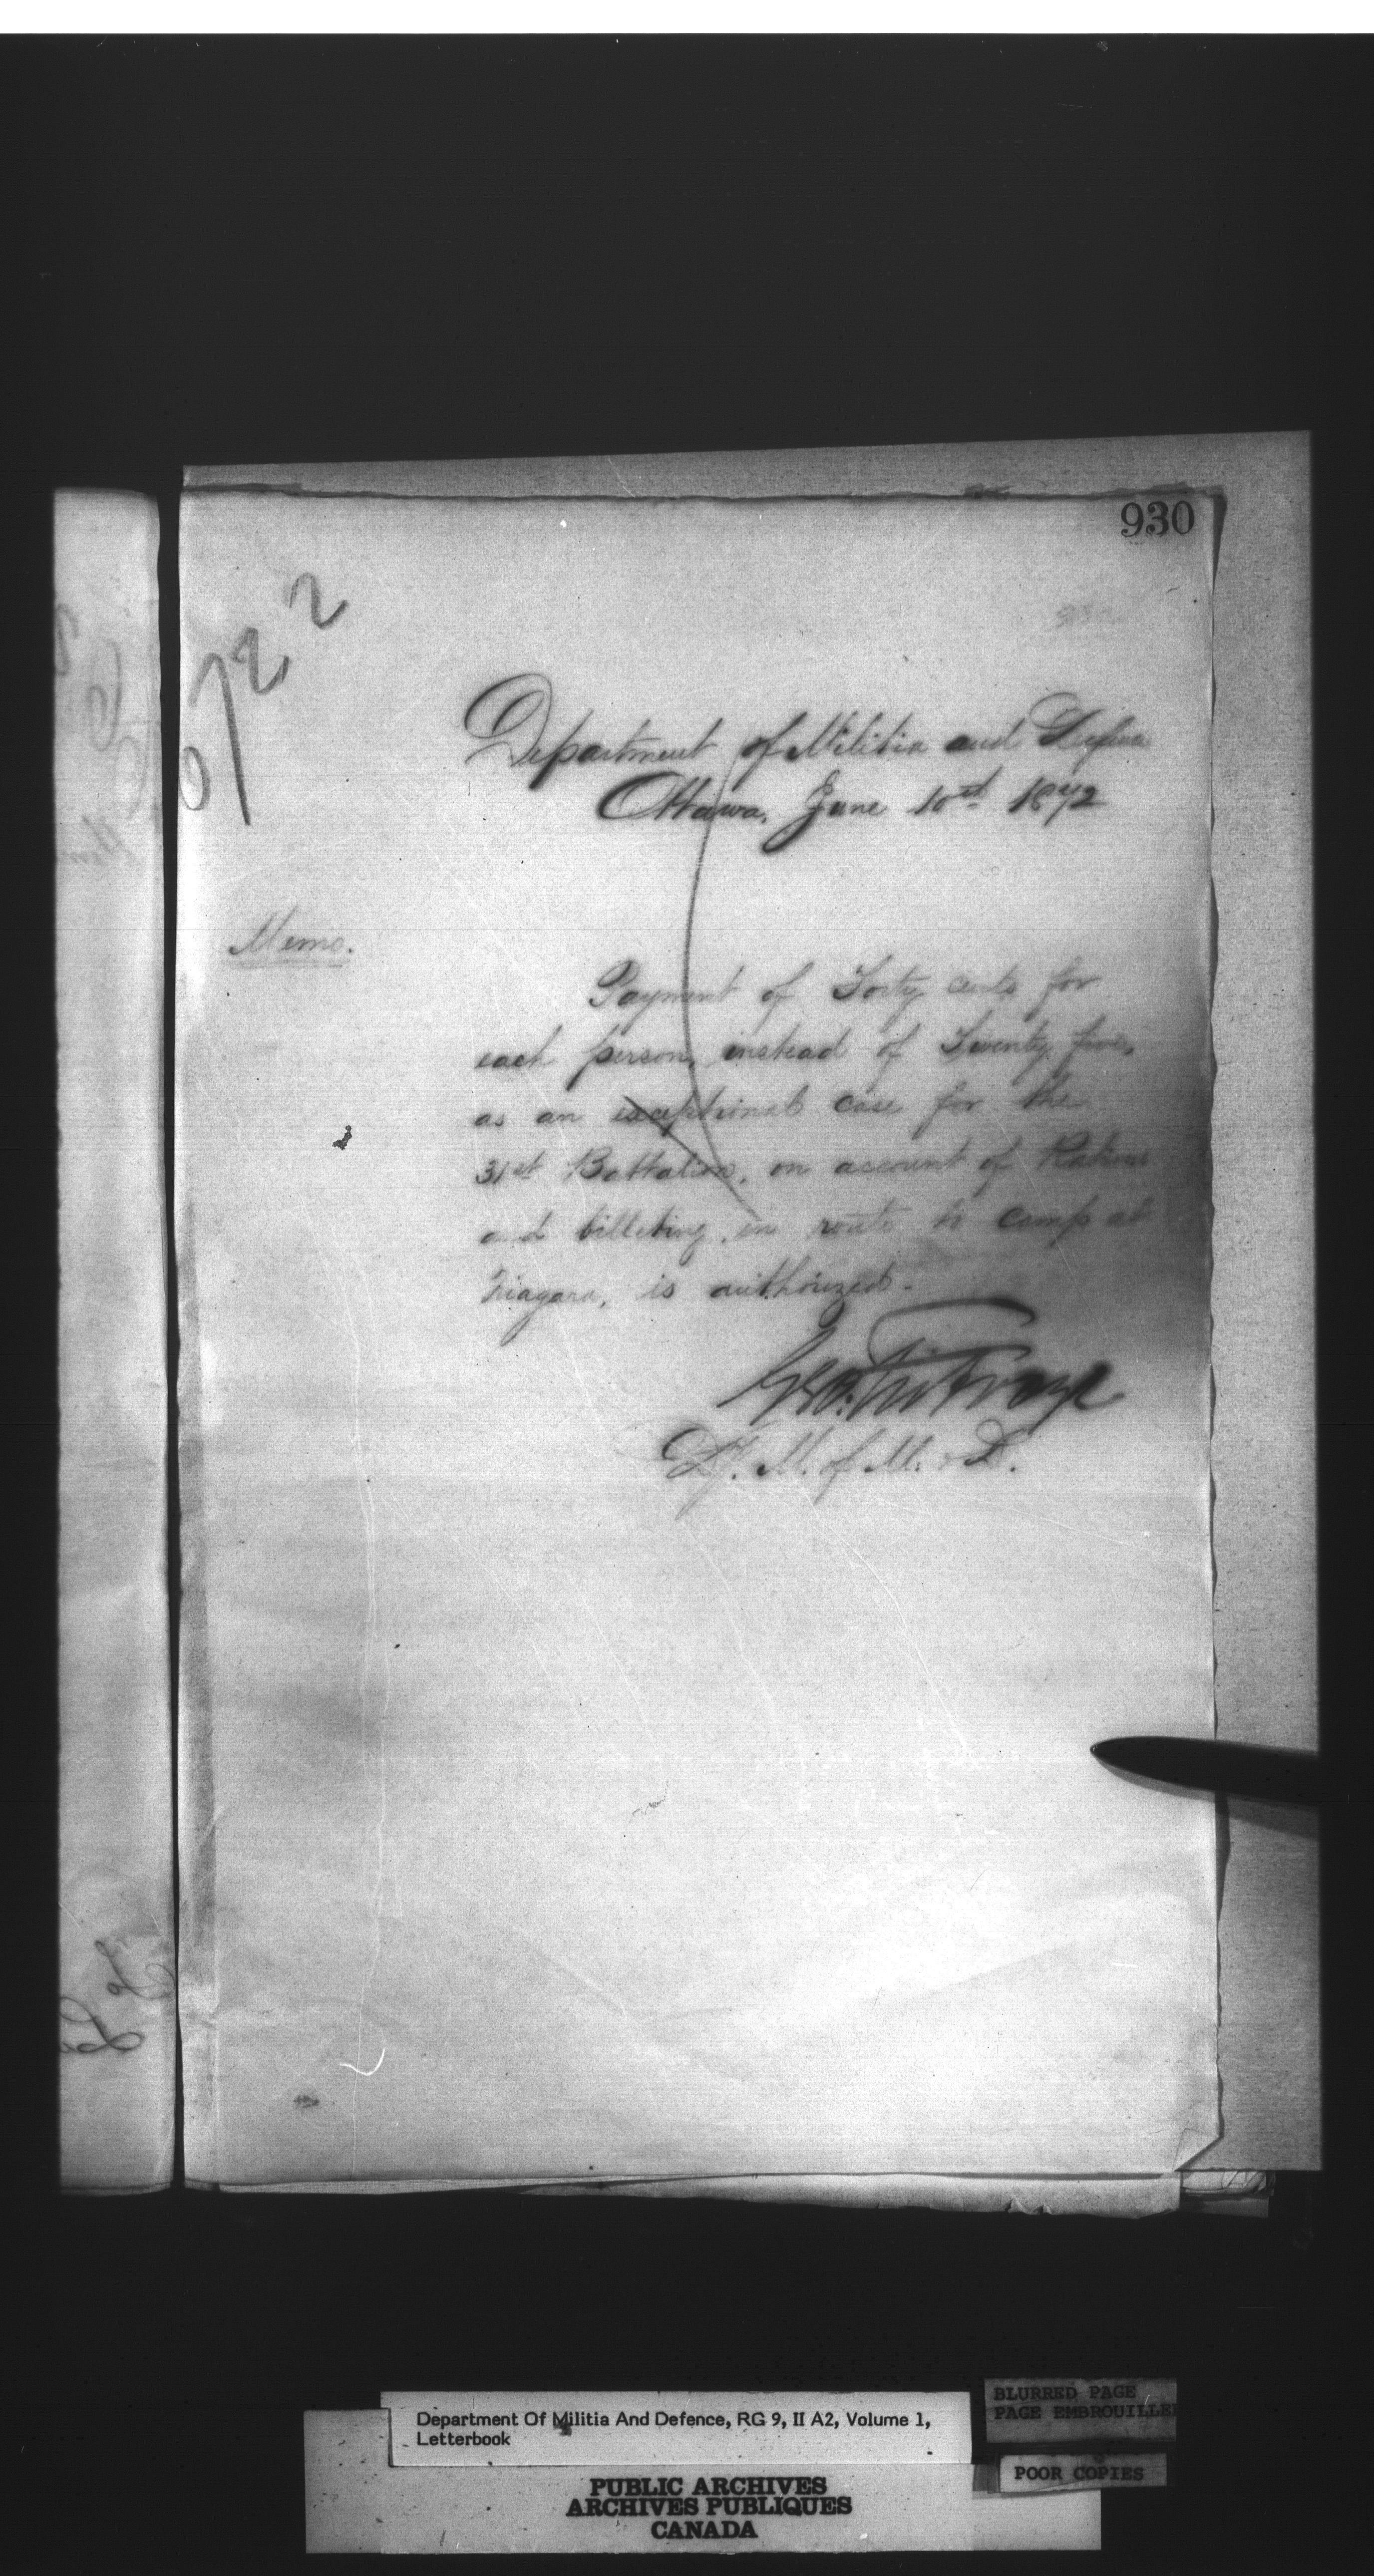 930
0722
Department of Militia and Defence
Ottawa, June 10th 1872
Memo.
Payment of Forty cents for
each person, instead of Twenty five,
as an exceptional case for the
31st Battalion, on account of Rations
and billeting, en route to camp at
Niagara, is authorized.
Geo. Futvoye
Dy. M. of M. & D.
Department Of Militia And Defence, RG 9, II A2, Volume 1,
Letterbook
BLURRED PAGE
PAGE EMBROUILLEE
POOR COPIES
PUBLIC ARCHIVES
ARCHIVES PUBLIQUES
CANADA